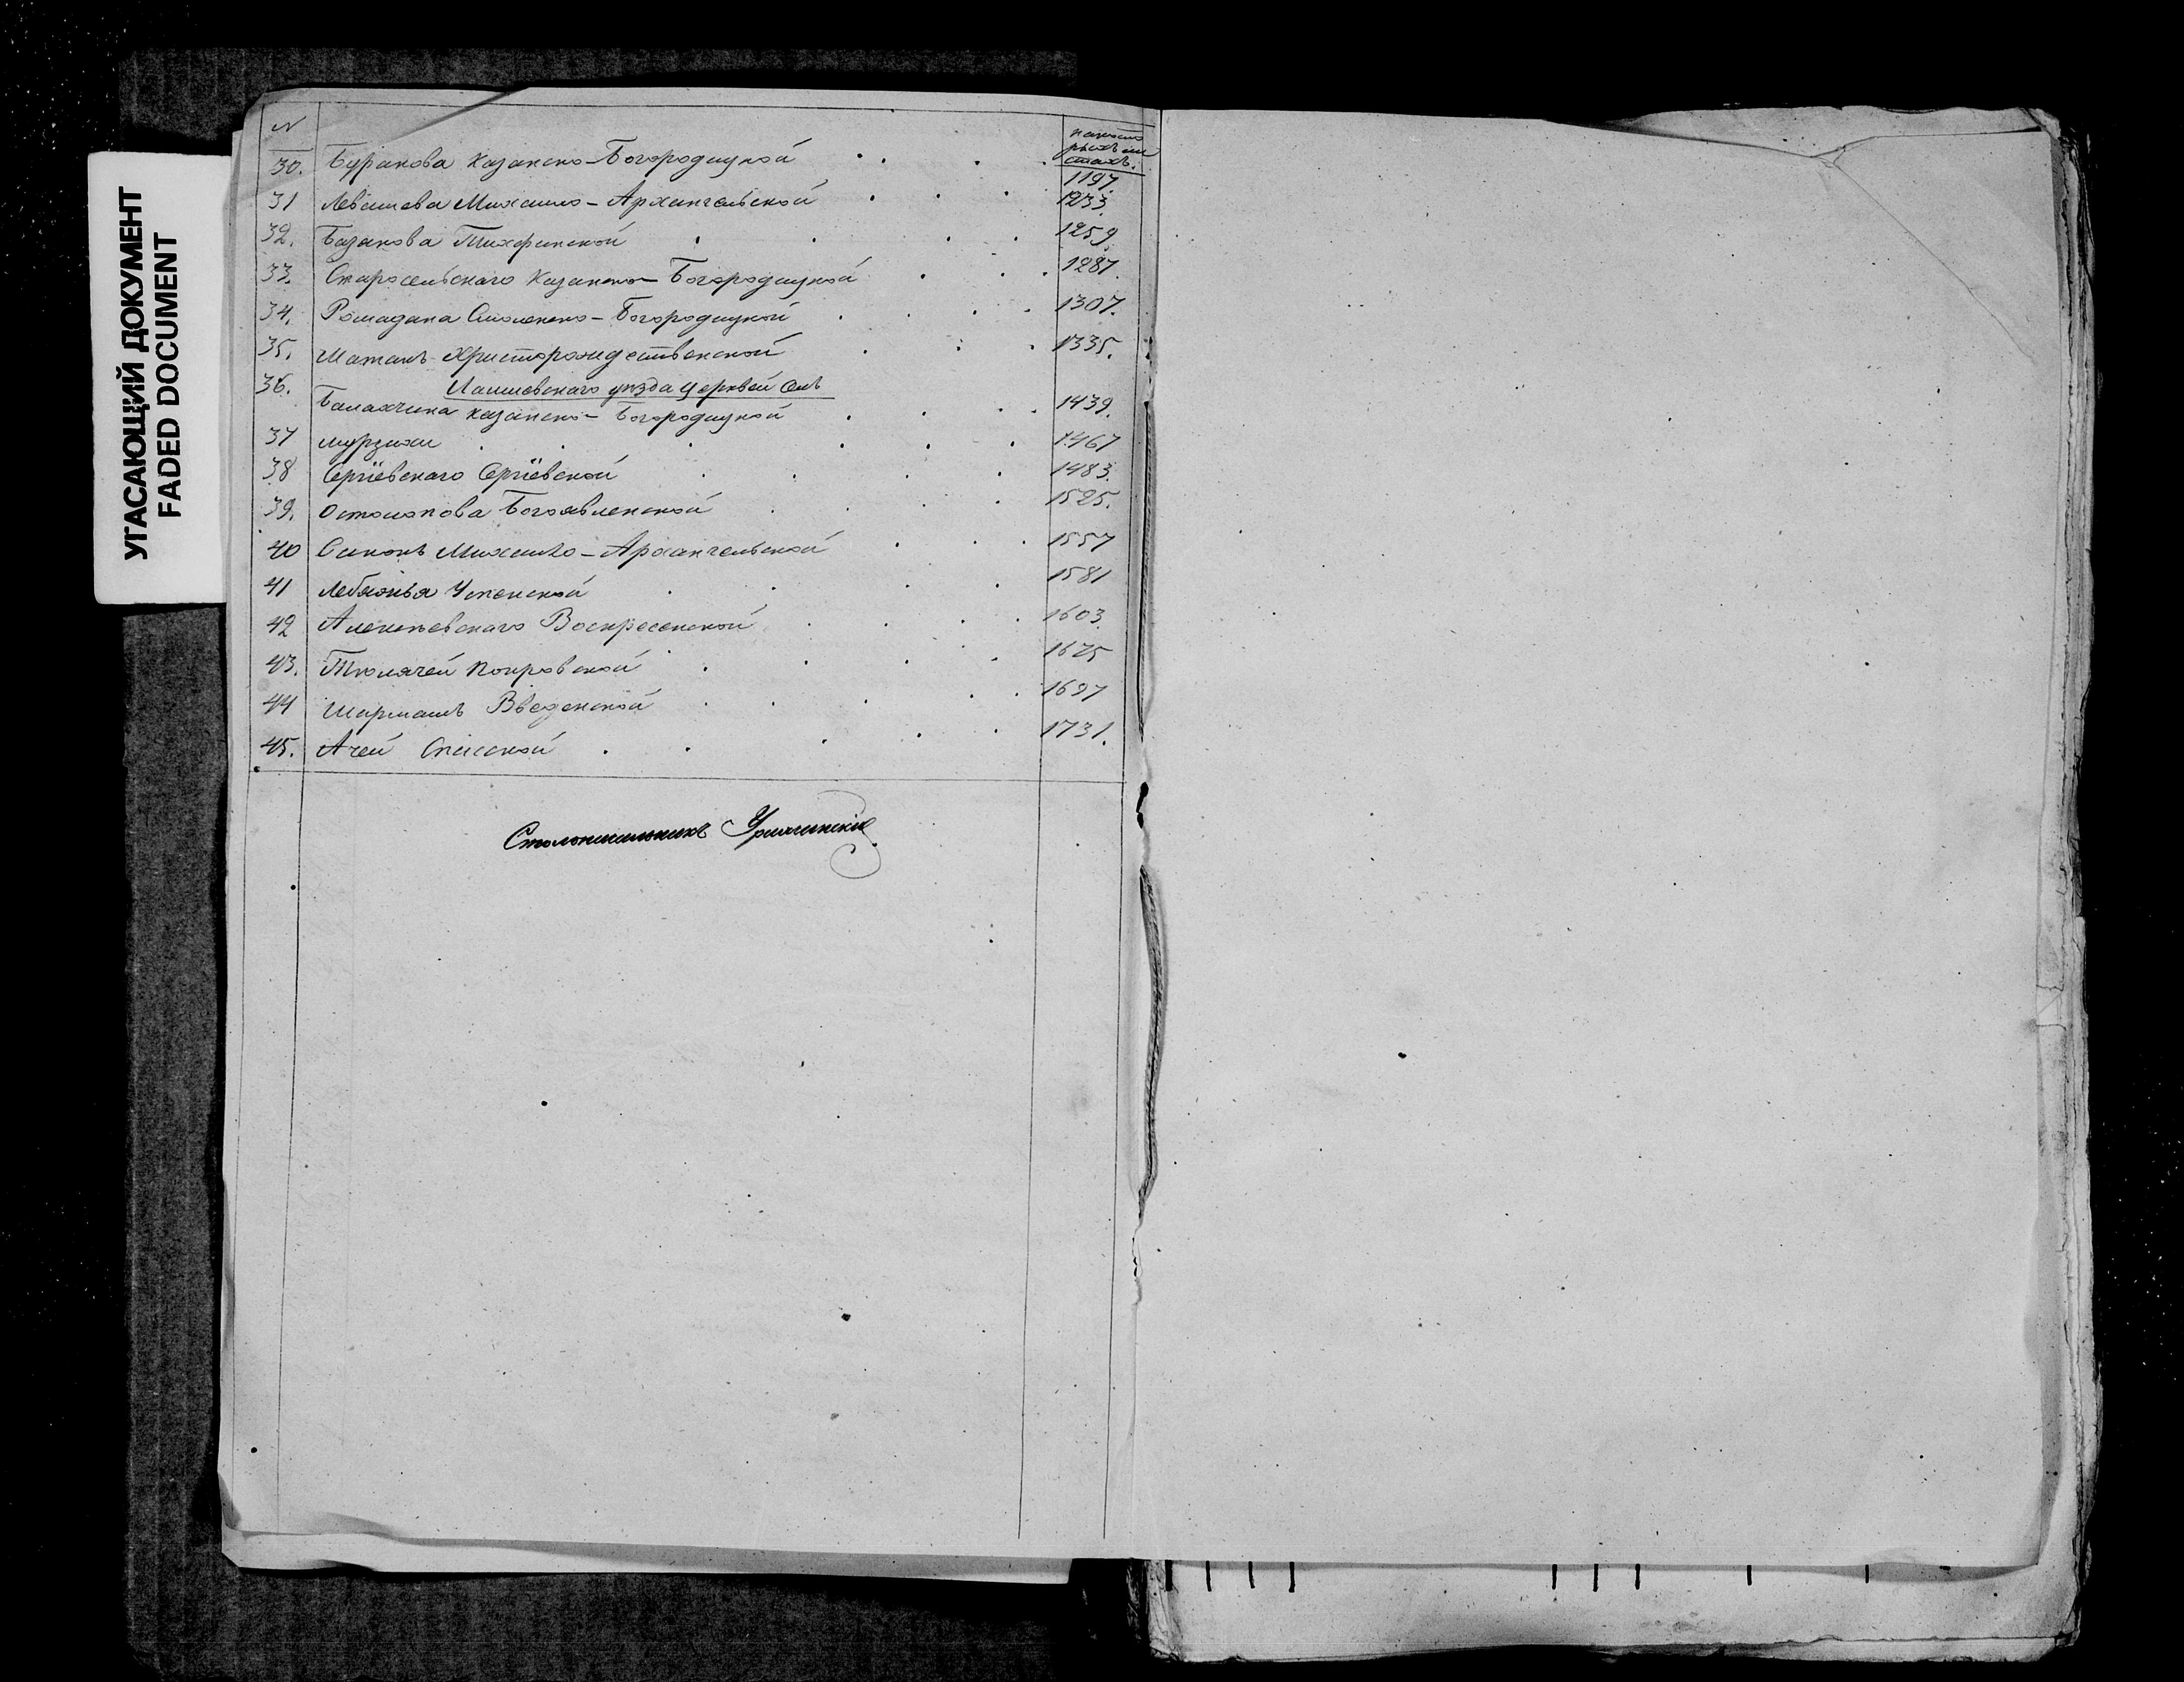 УГАСАЮЩИЙ ДОКУМЕНТ
FADED DOCUMENT
№ на кото
рыхъ ли
стахъ.
30. Буранова Казанско-Богородицкой 1197.
31 Левашева Михаило-Архангельской 1233.
32. Базакова Тихфинской 1259.
33. Старосельскаго Казанско-Богородицкой 1287.
34. Ромадана Смоленско-Богородицкой 1307.
35. Матакъ Христорождественской 1335.
Лаишевскаго уѣзда церквей селъ
36. Балахчина Казанско-Богородицкой 1439.
37 Мурзихи 1467
38 Сергіевскаго Сергіевской 1483.
39. Остолопова Богоявленской 1525.
40 Саконъ Михаило-Архангельской 1557
41 Лебяжья Успенской 1581
42 Алексѣевскаго Воскресенской 1603.
43. Тюлячей Покровской 1675
44 Шармашъ Введенской 1697
45. Ачей Спасской 1731.
Столоначальникъ